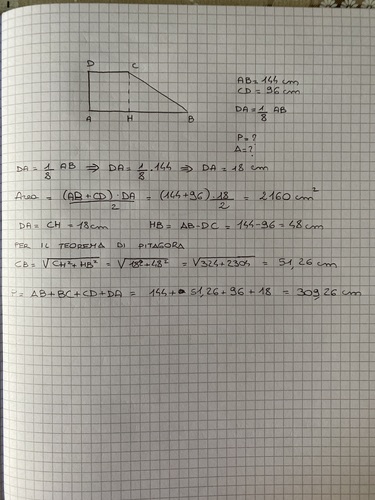 D C
A H B
AB = 144 cm
CD = 96 cm
DA = 1/8 AB
P = ?
A = ?
DA = 1/8 AB ⇒ DA = 1/8 · 144 ⇒ DA = 18 cm
Area = (AB + CD) · DA / 2 = (144 + 96) · 18 / 2 = 2160 cm²
DA = CH = 18 cm HB = AB - DC = 144 - 96 = 48 cm
PER IL TEOREMA DI PITAGORA
CB = √CH² + HB² = √18² + 48² = √324 + 2304 = 51,26 cm
P = AB + BC + CD + DA = 144 + 51,26 + 96 + 18 = 309,26 cm